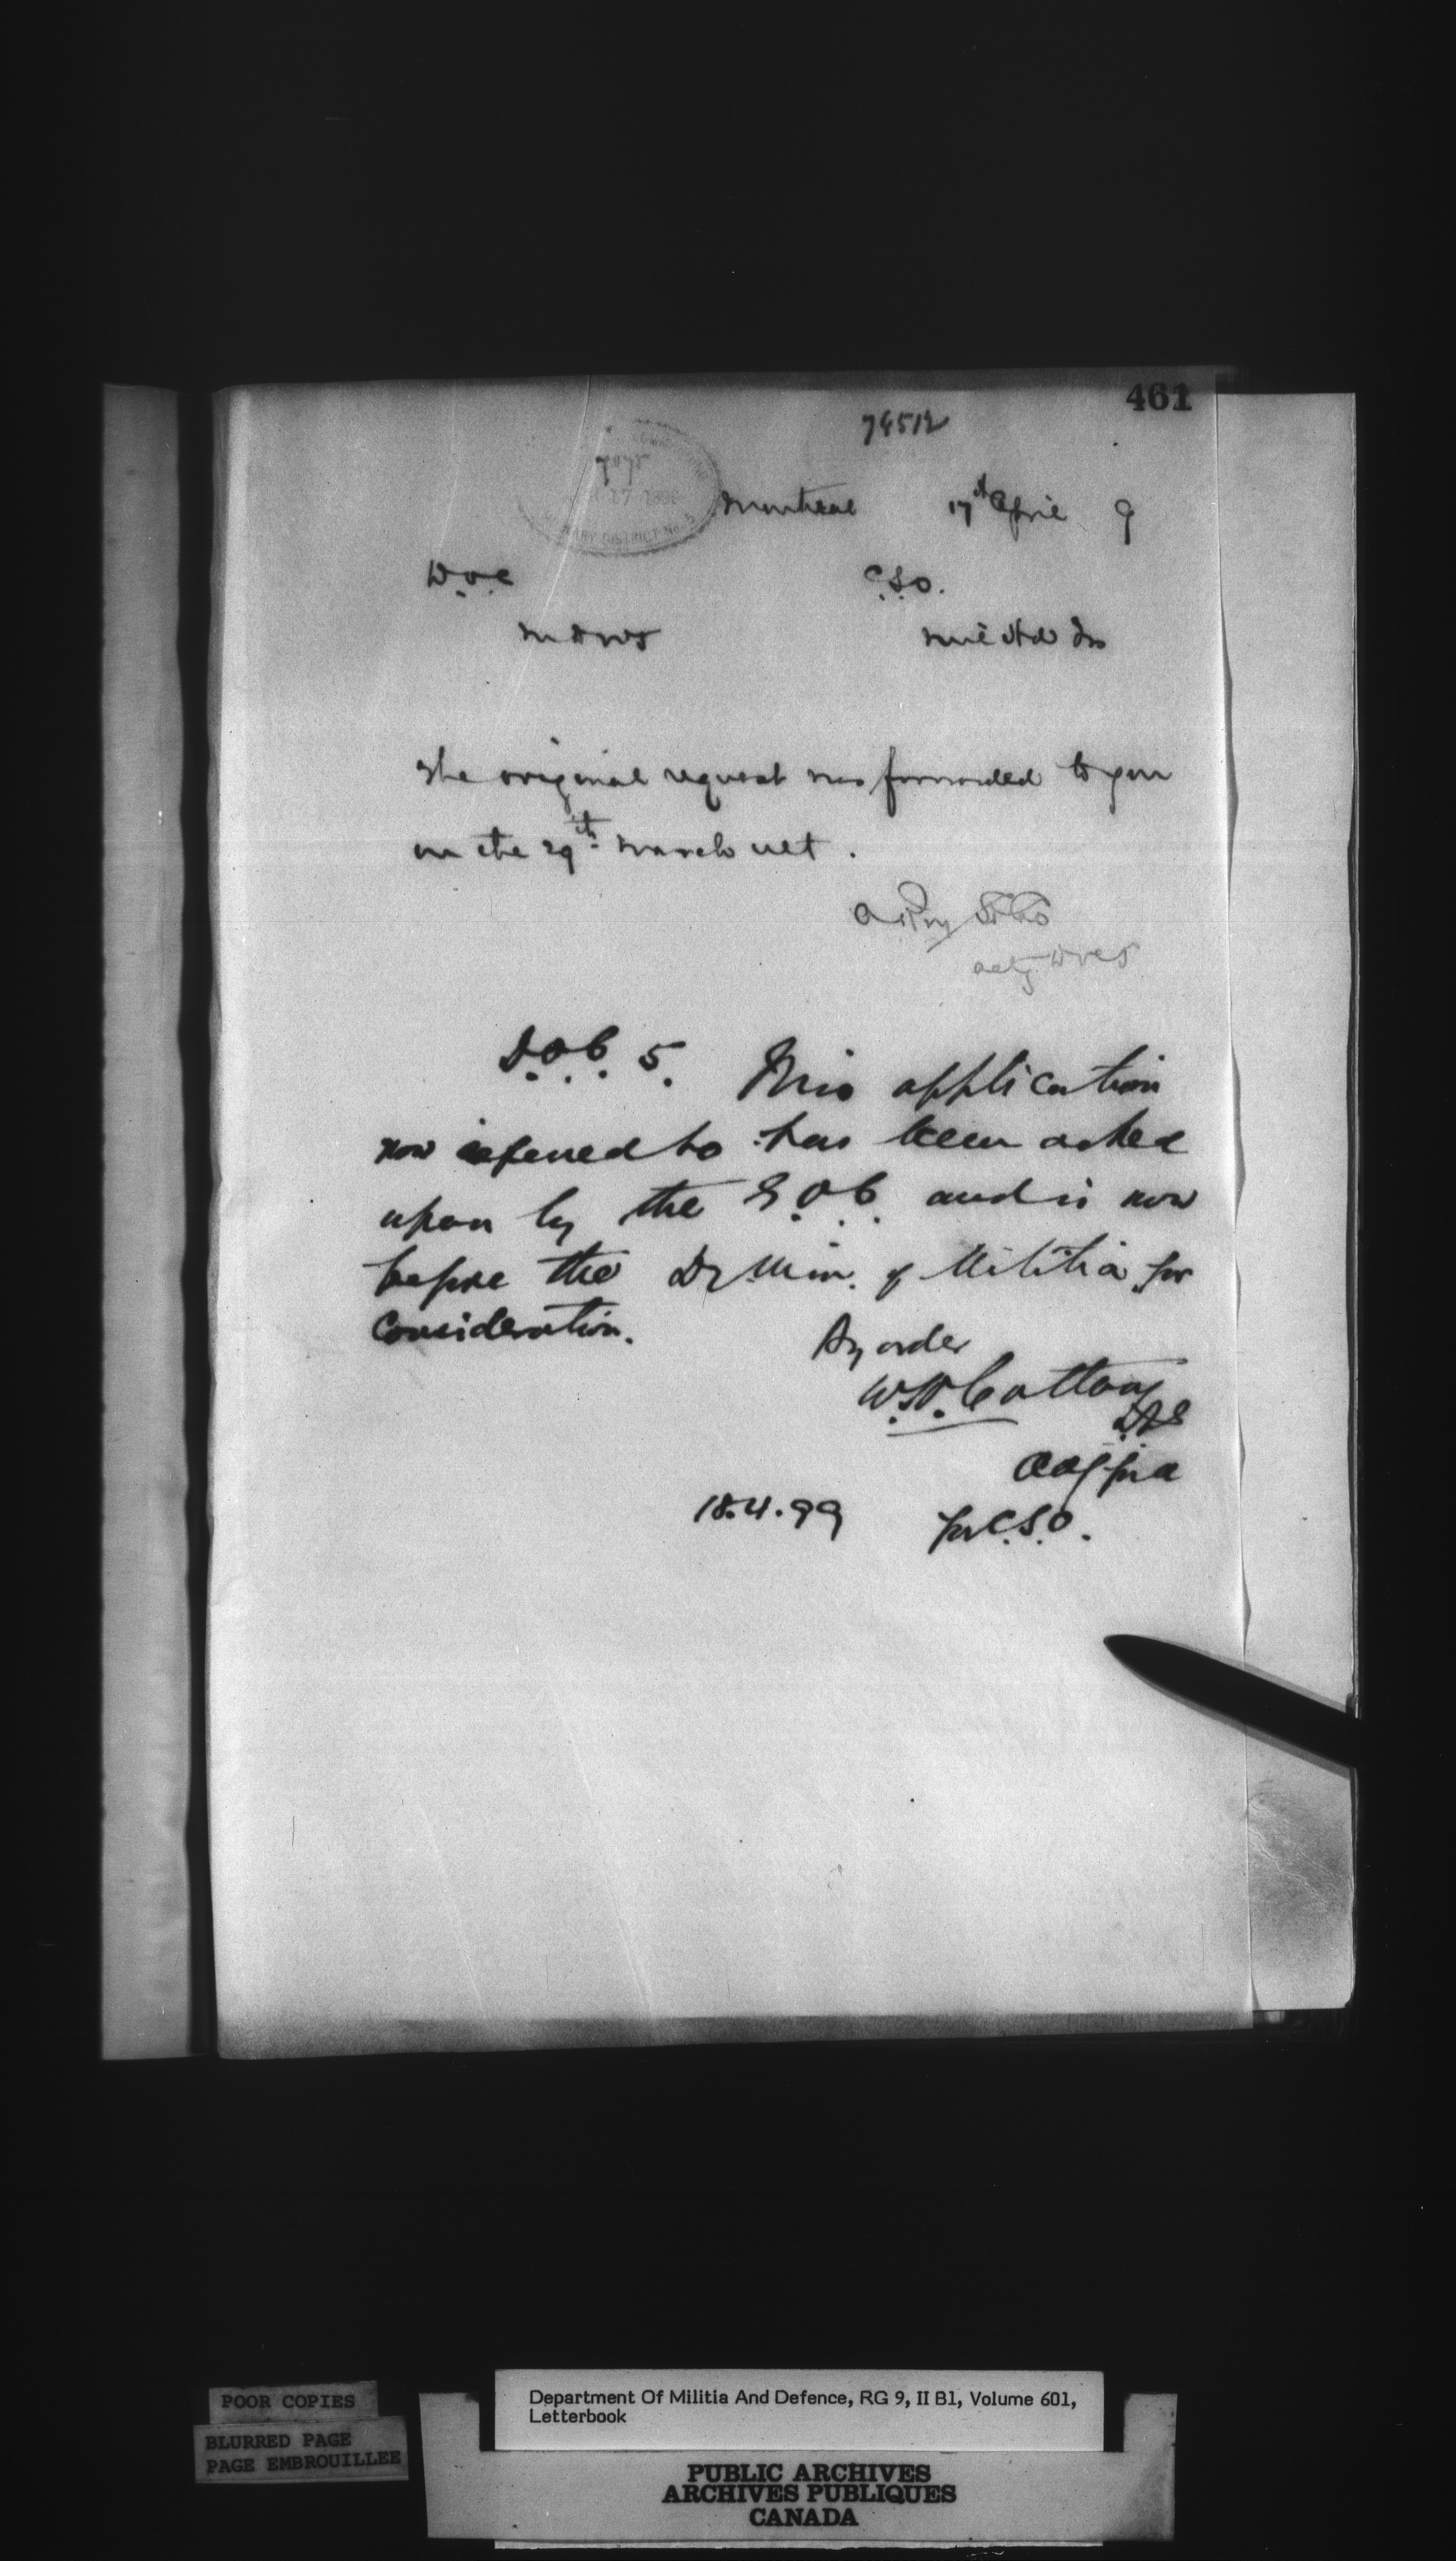 461
74512
Montreal 17th April 9
D.O.C C.S.O.
M D No 5 Mil Hd Qrs
The original request was forwarded to you
on the 29th March ult.
actg D O C 5
D.O.C. 5. This application
now referred to has been acted
upon by the G.O.C. and is now
before the Dy. Min. of Militia for
consideration.
By order
W.H. Cotton
AAG for A
18.4.99 for C.S.O.
POOR COPIES
BLURRED PAGE
PAGE EMBROUILLEE
Department Of Militia And Defence, RG 9, II B1, Volume 601,
Letterbook
PUBLIC ARCHIVES
ARCHIVES PUBLIQUES
CANADA